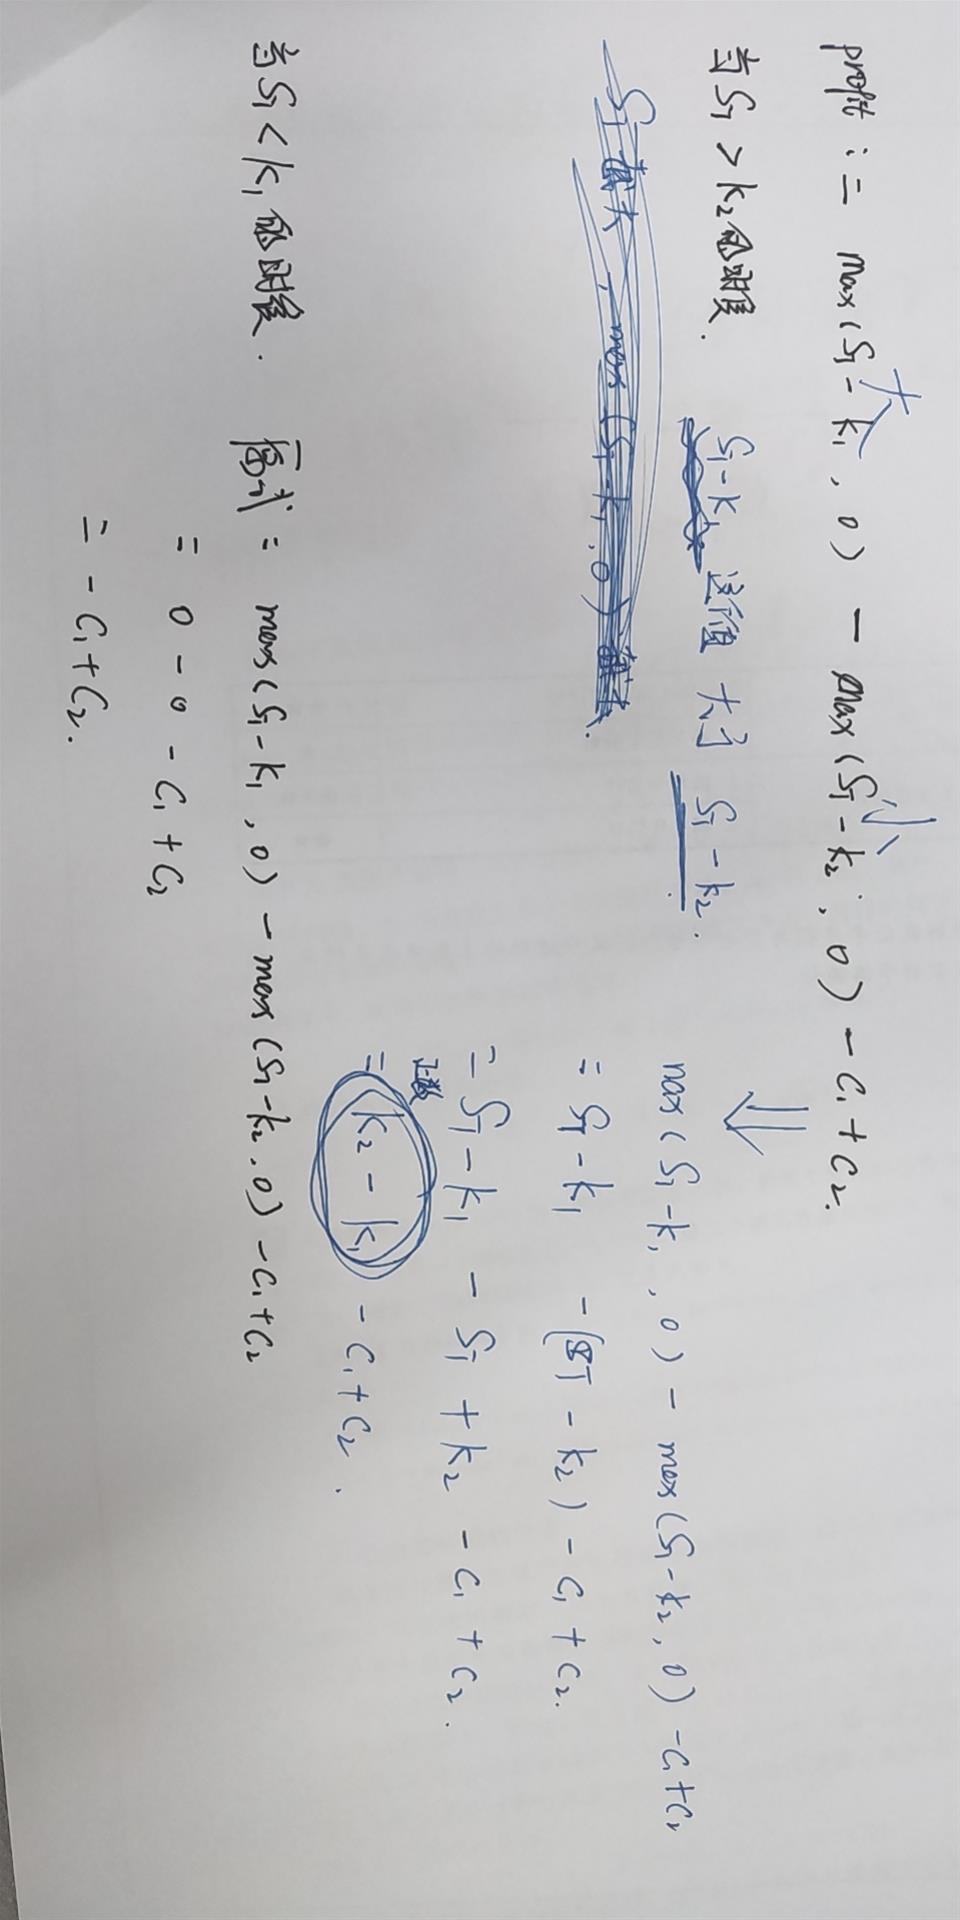 profit := max(S_T - k₁, 0) - max(S_T - k₂, 0) - C₁ + C₂.
大
小
当 S_T > k₂ 的时候.
S_T - k₁ 这个值 大于 S_T - k₂.
⇓
max(S_T - k₁, 0) - max(S_T - k₂, 0) - C₁ + C₂
= S_T - k₁ - (S_T - k₂) - C₁ + C₂.
= S_T - k₁ - S_T + k₂ - C₁ + C₂.
正数
= k₂ - k₁ - C₁ + C₂.
当 S_T < k₁ 的时候. 原式 = max(S_T - k₁, 0) - max(S_T - k₂, 0) - C₁ + C₂
= 0 - 0 - C₁ + C₂
= - C₁ + C₂.